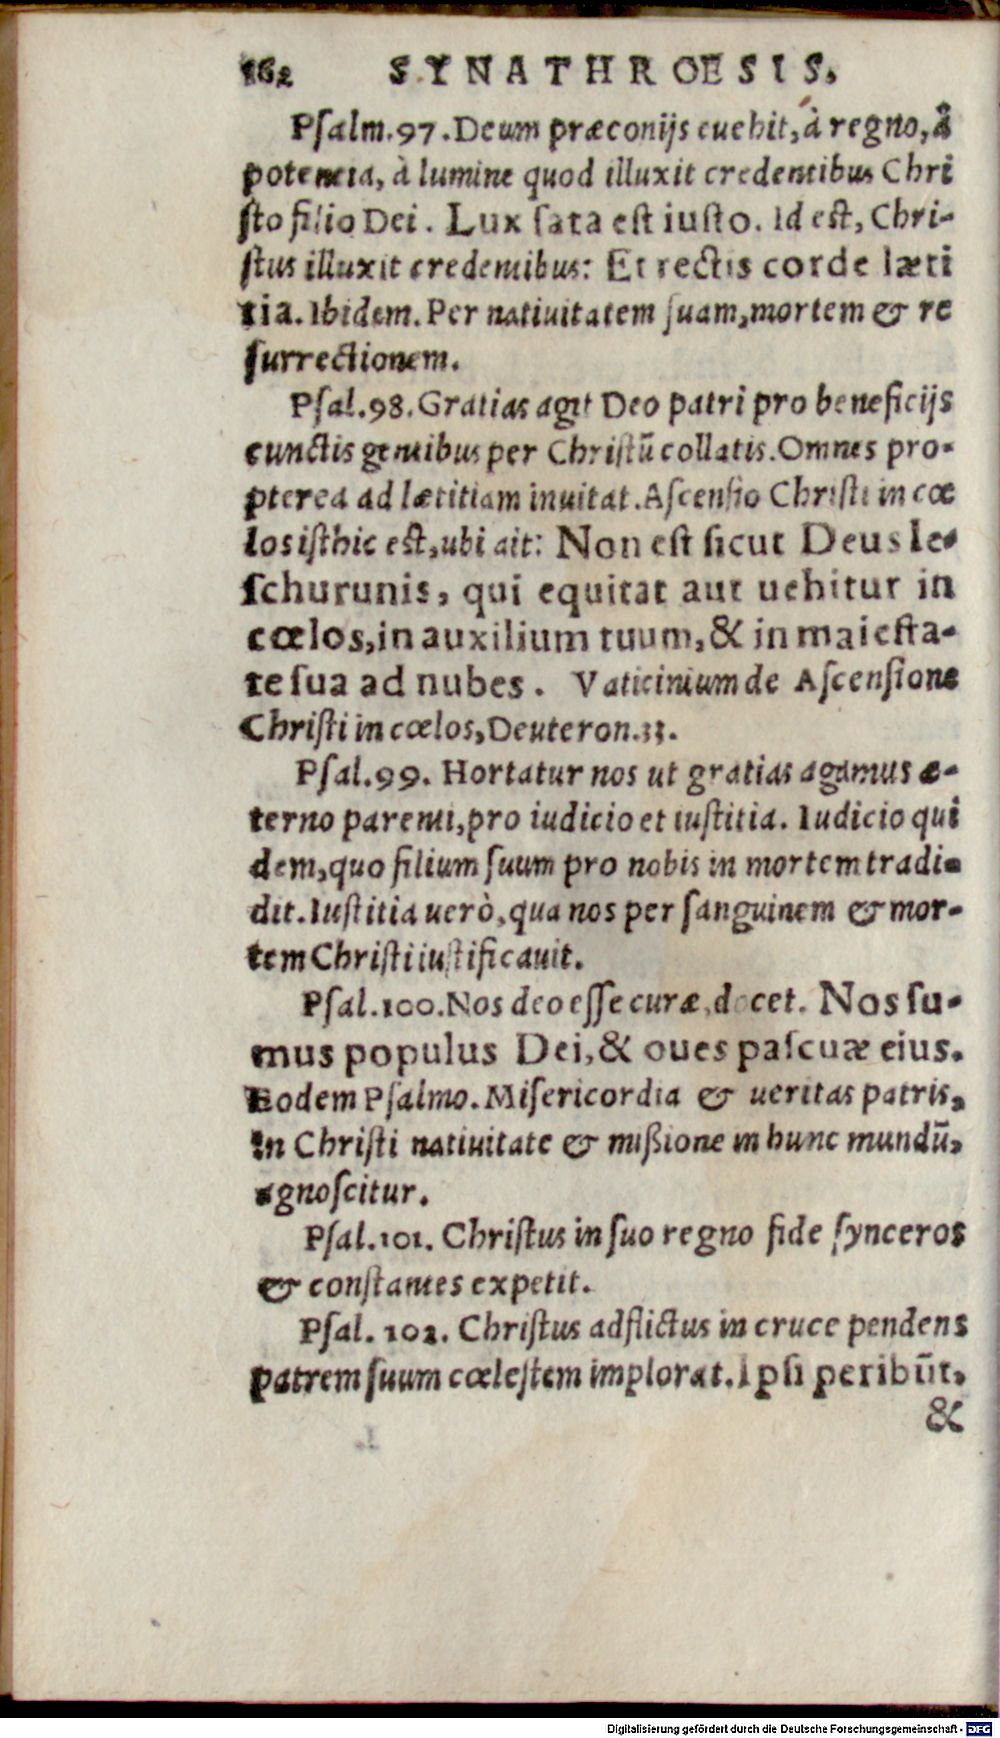 162 SYNATHROESIS.
Psalm.97.Deum præconijs euehit,à regno,à
potentia, à lumine quod illuxit credentibus Chri
sto filio Dei. Lux sata est iusto. Id est, Chri-
stus illuxit credentibus: Et rectis corde læti
tia. Ibidem. Per natiuitatem suam,mortem & re
surrectionem.
Psal.98.Gratias agit Deo patri pro beneficijs
cunctis gentibus per Christū collatis.Omnes pro-
pterea ad lætitiam inuitat.Ascensio Christi in cœ
los isthic est,ubi ait: Non est sicut Deus Ie-
schurunis, qui equitat aut uehitur in
cœlos,in auxilium tuum,& in maiesta-
te sua ad nubes. Vaticinium de Ascensione
Christi in cœlos,Deuteron.33.
Psal.99. Hortatur nos ut gratias agamus æ-
terno parenti,pro iudicio et iustitia. Iudicio qui
dem,quo filium suum pro nobis in mortem tradi-
dit.Iustitia uerò,qua nos per sanguinem & mor-
tem Christi iustificauit.
Psal.100.Nos deo esse curæ,docet. Nos su-
mus populus Dei,& oues pascuæ eius.
Eodem Psalmo.Misericordia & ueritas patris,
in Christi natiuitate & mißione in hunc mundū,
agnoscitur.
Psal.101. Christus in suo regno fide synceros
& constantes expetit.
Psal. 102. Christus adflictus in cruce pendens
patrem suum cœlestem implorat.Ipsi peribūt,
&
Digitalisierung gefördert durch die Deutsche Forschungsgemeinschaft - DFG